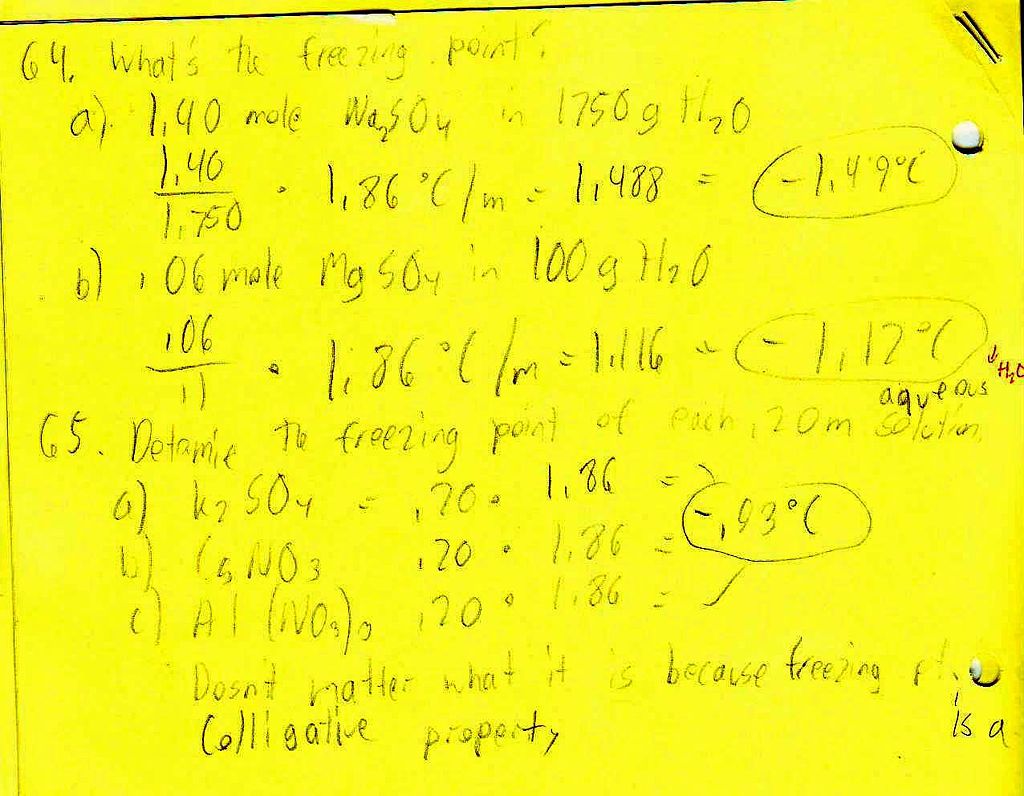 64. What's the freezing point?
a). 1,40 mole Na2SO4 in 1750 g H2O
1,40
1,750 · 1,86 °C/m = 1,488 = -1,49°C
b) ,06 mole MgSO4 in 100 g H2O
,06
,1 · 1,86 °C/m = 1,116 = -1,12°C
↓ H2O
aqueous
65. Detamie the freezing point of each ,20m solution
a) K2SO4 = ,20 · 1,86 =
-,93°C
b) CsNO3 ,20 · 1,86 =
c) Al(NO3)3 ,20 · 1,86 =
Dosnt matter what it is because freezing pt.
is a
Colligative property